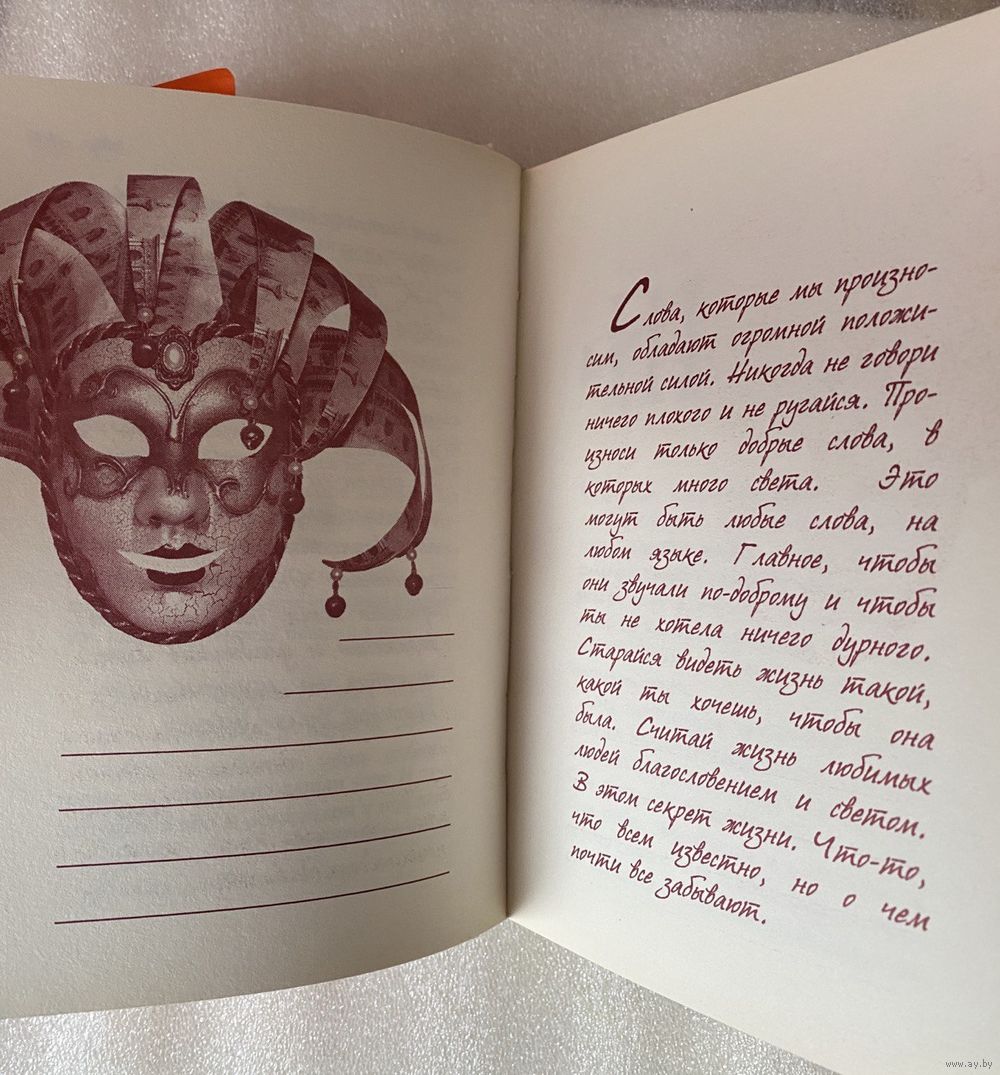 Слова, которые мы произно-
сим, обладают огромной положи-
тельной силой. Никогда не говори
ничего плохого и не ругайся. Про-
износи только добрые слова, в
которых много света. Это
могут быть любые слова, на
любом языке. Главное, чтобы
они звучали по-доброму и чтобы
ты не хотела ничего дурного.
Старайся видеть жизнь такой,
какой ты хочешь, чтобы она
была. Считай жизнь любимых
людей благословением и светом.
В этом секрет жизни. Что-то,
что всем известно, но о чем
почти все забывают.
www.ay.by